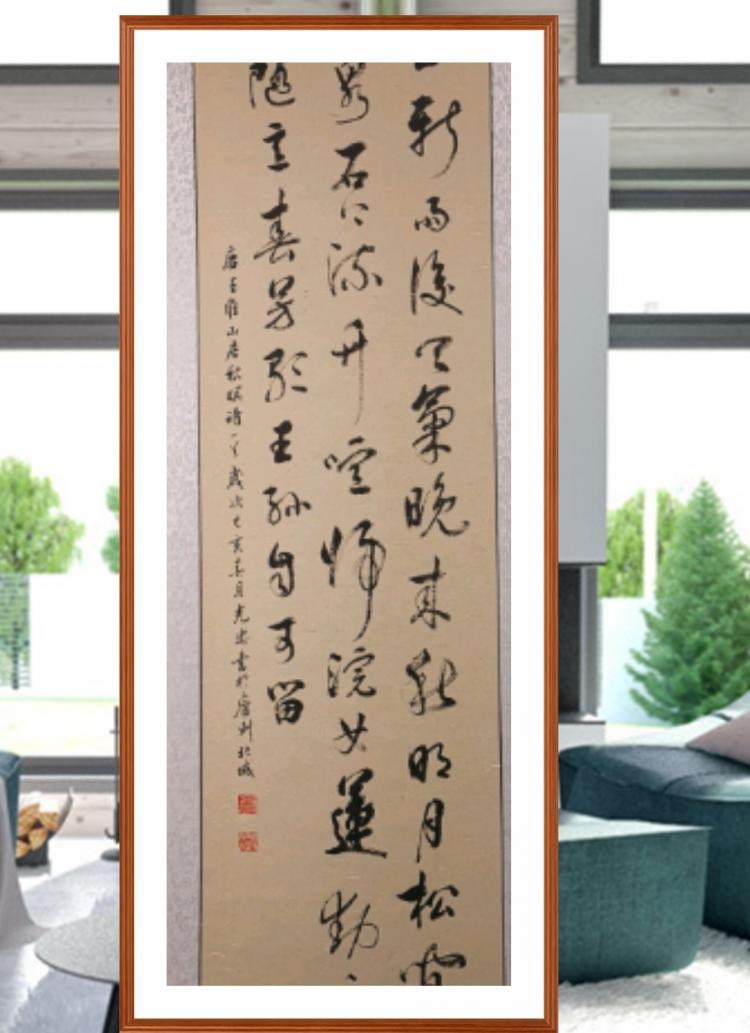 新雨後天氣晚来秋明月松間
泉石上流竹喧歸浣女蓮動
随意春芳歇王孫自可留
唐王維山居秋暝詩一首歲次己亥春月書於廬州北城